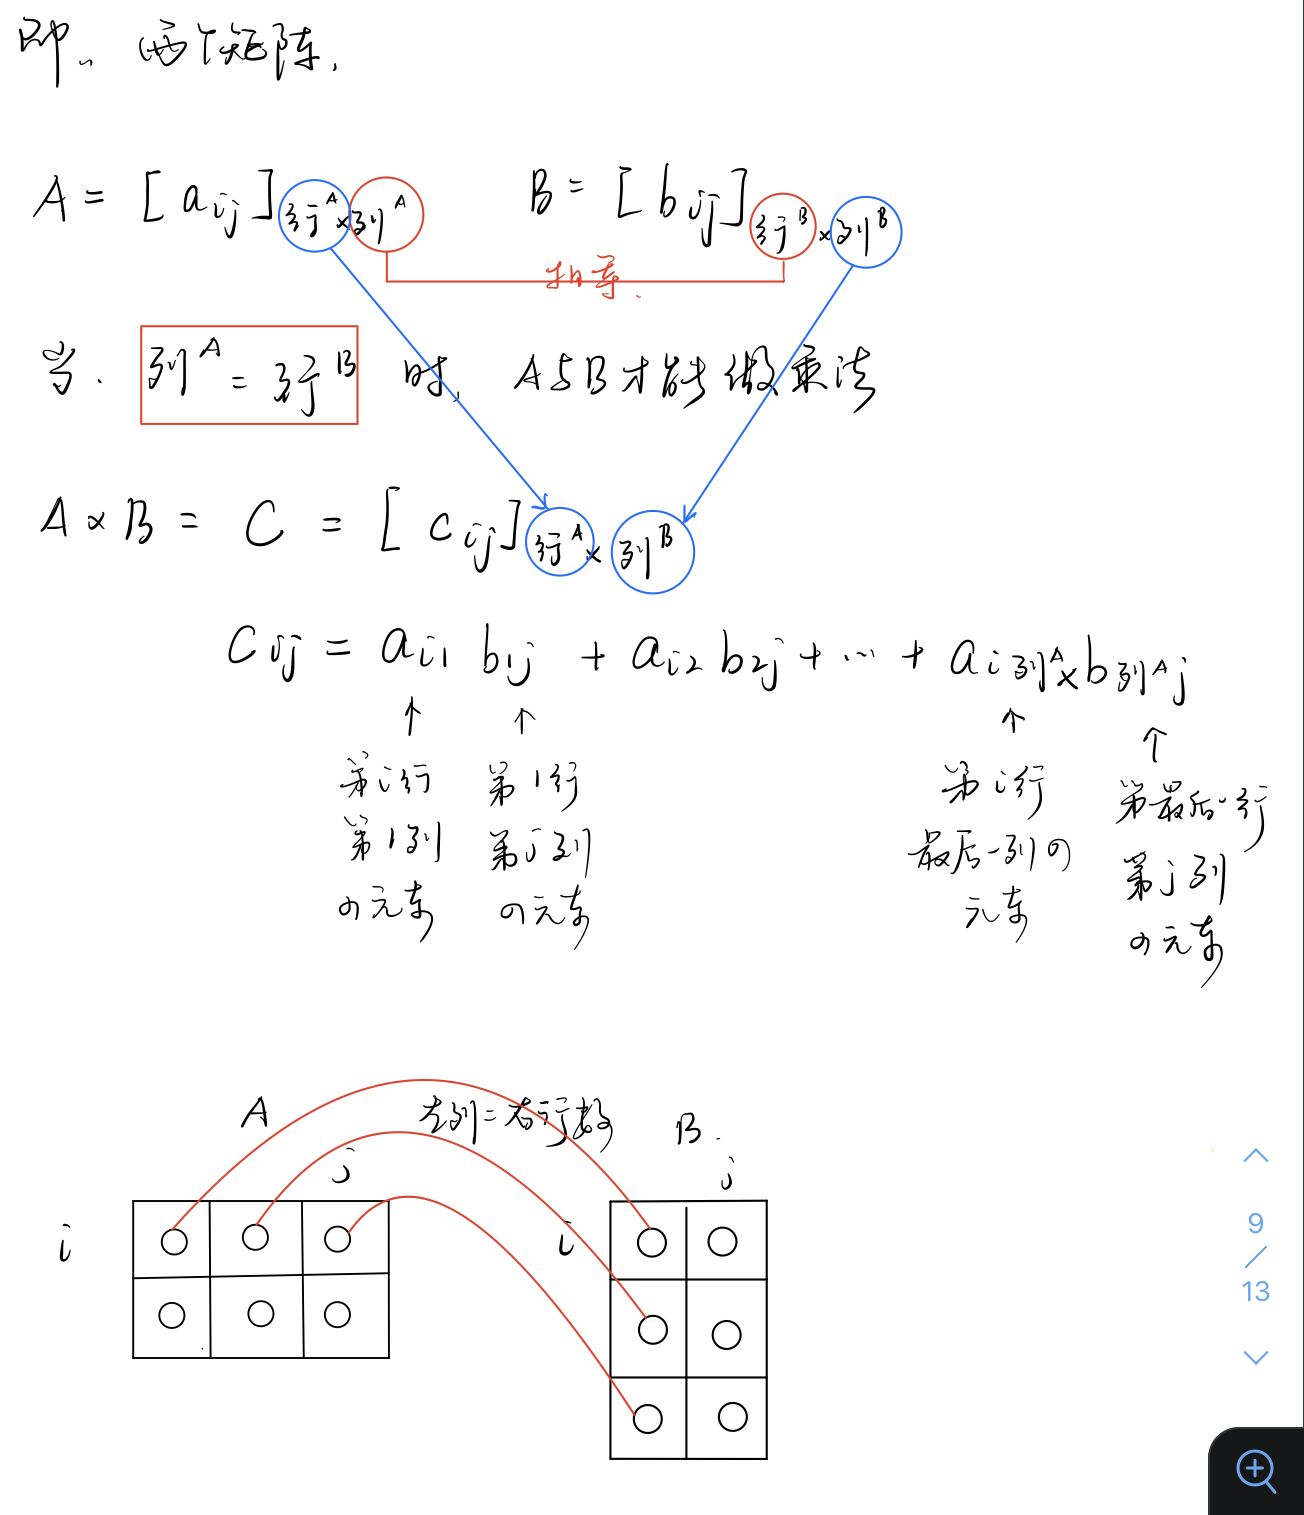 即.. 两个矩阵.
A = [aij]行ᴬ×列ᴬ B = [bij]行ᴮ×列ᴮ
相等.
当. 列ᴬ = 行ᴮ 时, A与B才能做乘法
A × B = C = [cij]行ᴬ×列ᴮ
Cij = ai1 b1j + ai2 b2j + … + ai列ᴬ × b列ᴬj
↑ ↑ ↑ ↑
第i行 第1行 第i行 第最后一行
第1列 第j列 最后一列の 第j列
の元素 の元素 元素 の元素
A 左列=右行数 B.
j j
i i
9
/
13